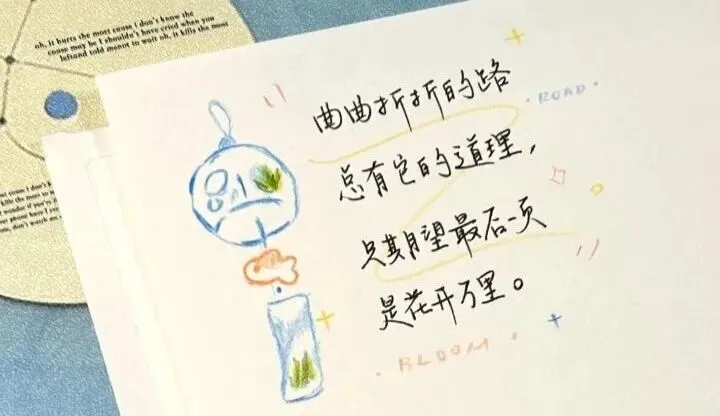 oh, it hurts the most cause i don't know the
cause may be I shouldn't have cried when you
leftand told menot to wait oh, it kills the most
曲曲折折的路
·ROAD·
总有它的道理，
只期望最后一页
是花开万里。
·BLOOM·